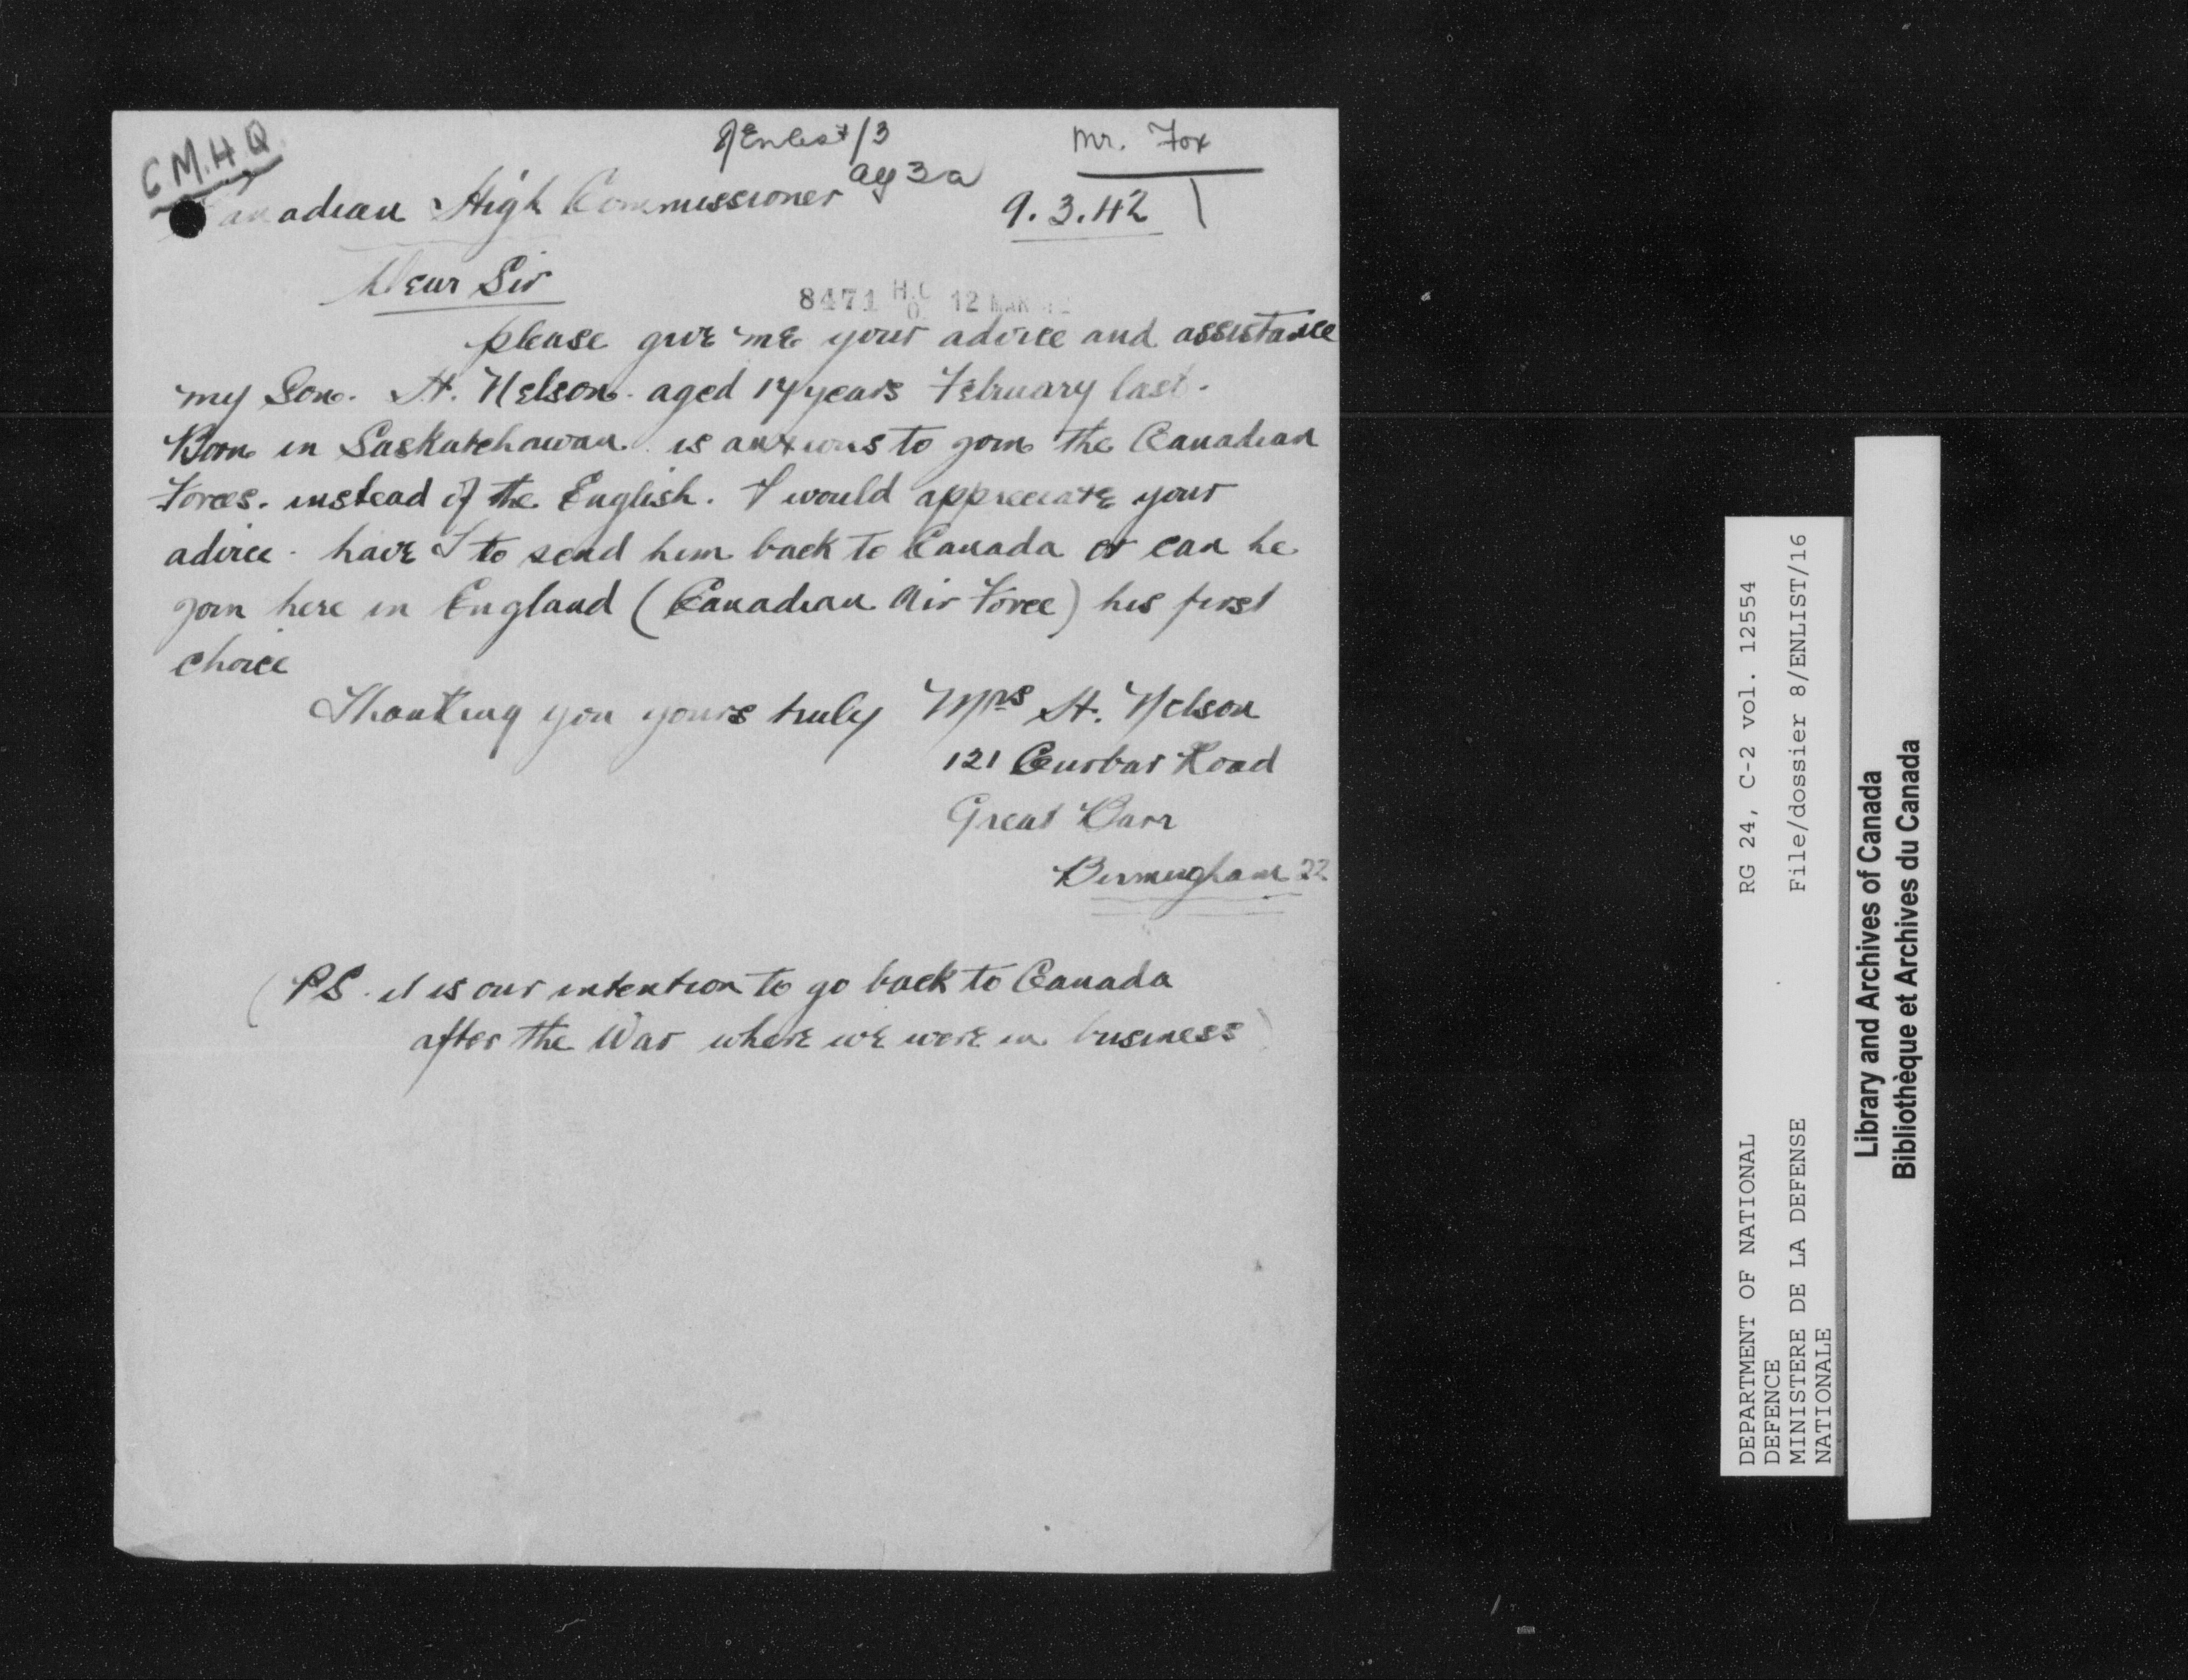 C M.H.Q.
Enlist/3
Mr. Fox
ag 3a
Canadian High Commissioner
9.3.42
Dear Sir
8471 H.C.O. 12 MAR 42
please give me your advice and assistance
my Son. H. Nelson. aged 17 years February last.
Born in Saskatchawan. is anxious to join the Canadian
Forces. instead of the English. I would appreciate your
advice. have I to send him back to Canada or can he
join here in England (Canadian Air Force) his first
choice
Thanking you yours truly Mrs H. Nelson
121 Curbar Road
Great Barr
Birmingham 22
(PS. it is our intention to go back to Canada
after the War where we were in business)
DEPARTMENT OF NATIONAL RG 24, C-2 vol. 12554
DEFENCE
MINISTERE DE LA DEFENSE File/dossier 8/ENLIST/16
NATIONALE
Library and Archives of Canada
Bibliothèque et Archives du Canada